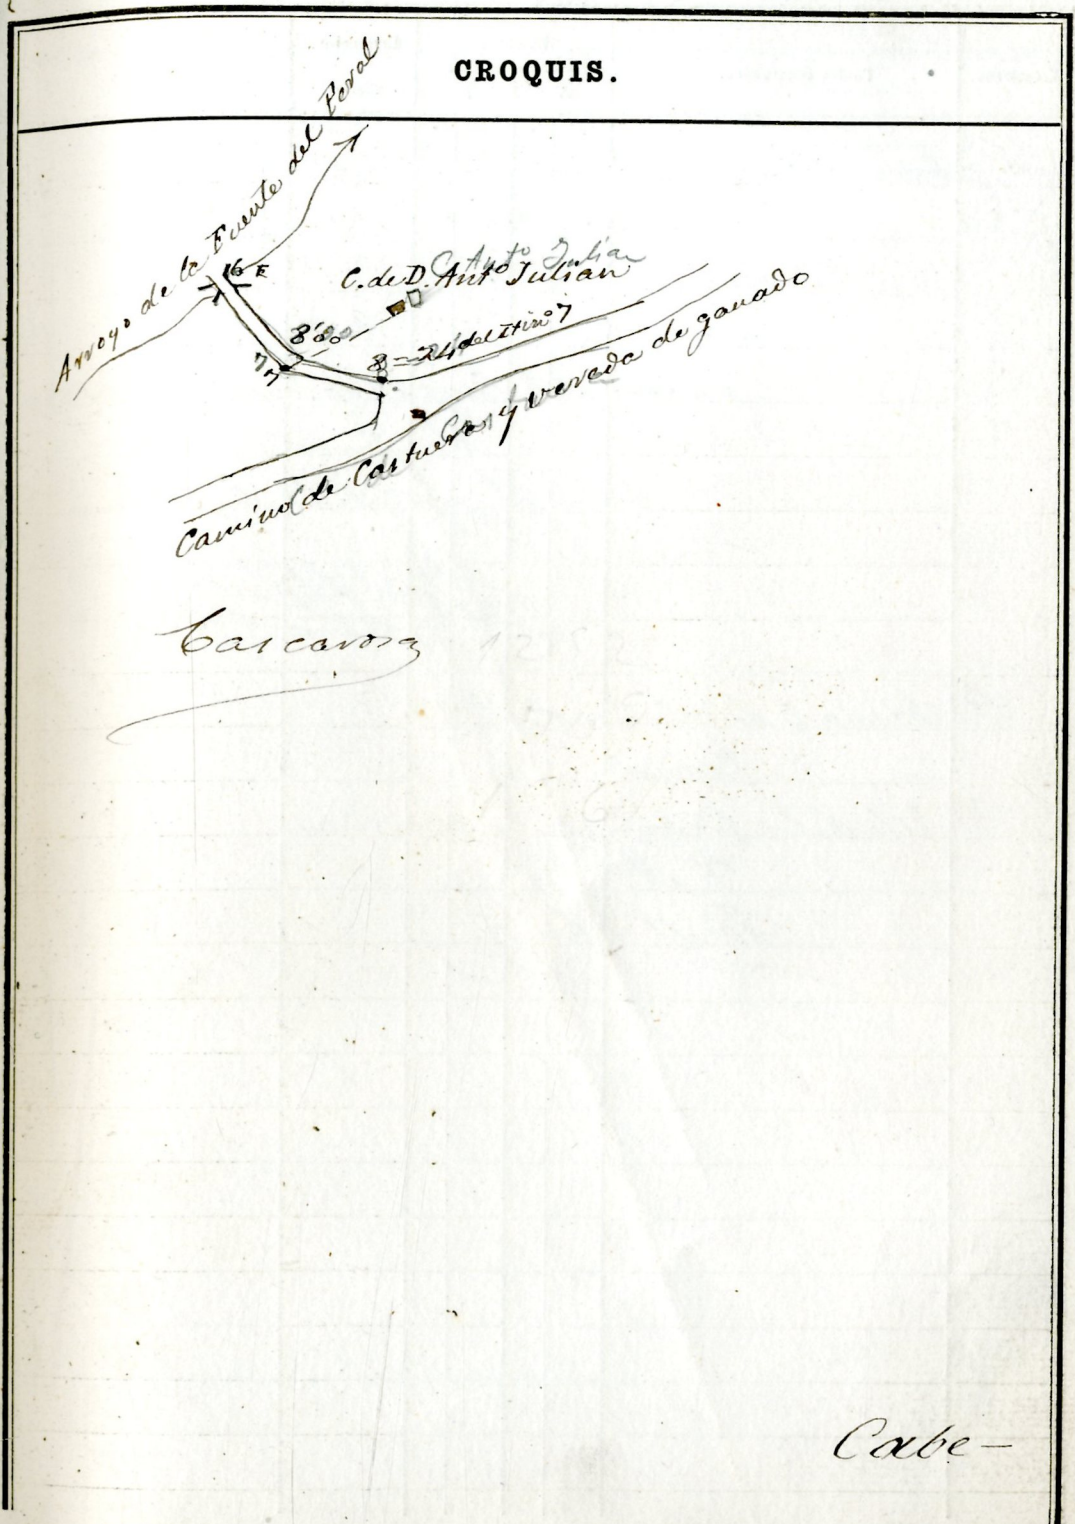 CROQUIS.
Arroyo de la Fuente del Peral
6 E
C. Antº Julian
C. de D. Antº Julian
8'80
8 = 24 del Itinº 7
7
Camino de Castuera y vereda de ganado
Cascarosa
Cabe-